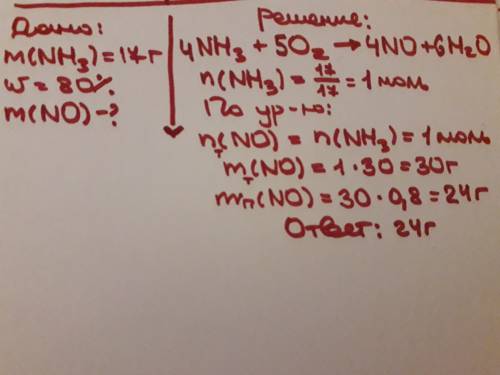 Дано:
m(NH₃)=17г
w=80%
m(NO)-?
Решение:
4NH₃+5O₂→4NO+6H₂O
n(NH₃)=17/17=1 моль
По ур-ю:
nт(NO)=n(NH₃)=1 моль
mт(NO)=1·30=30г
mп(NO)=30·0,8=24г
Ответ: 24г